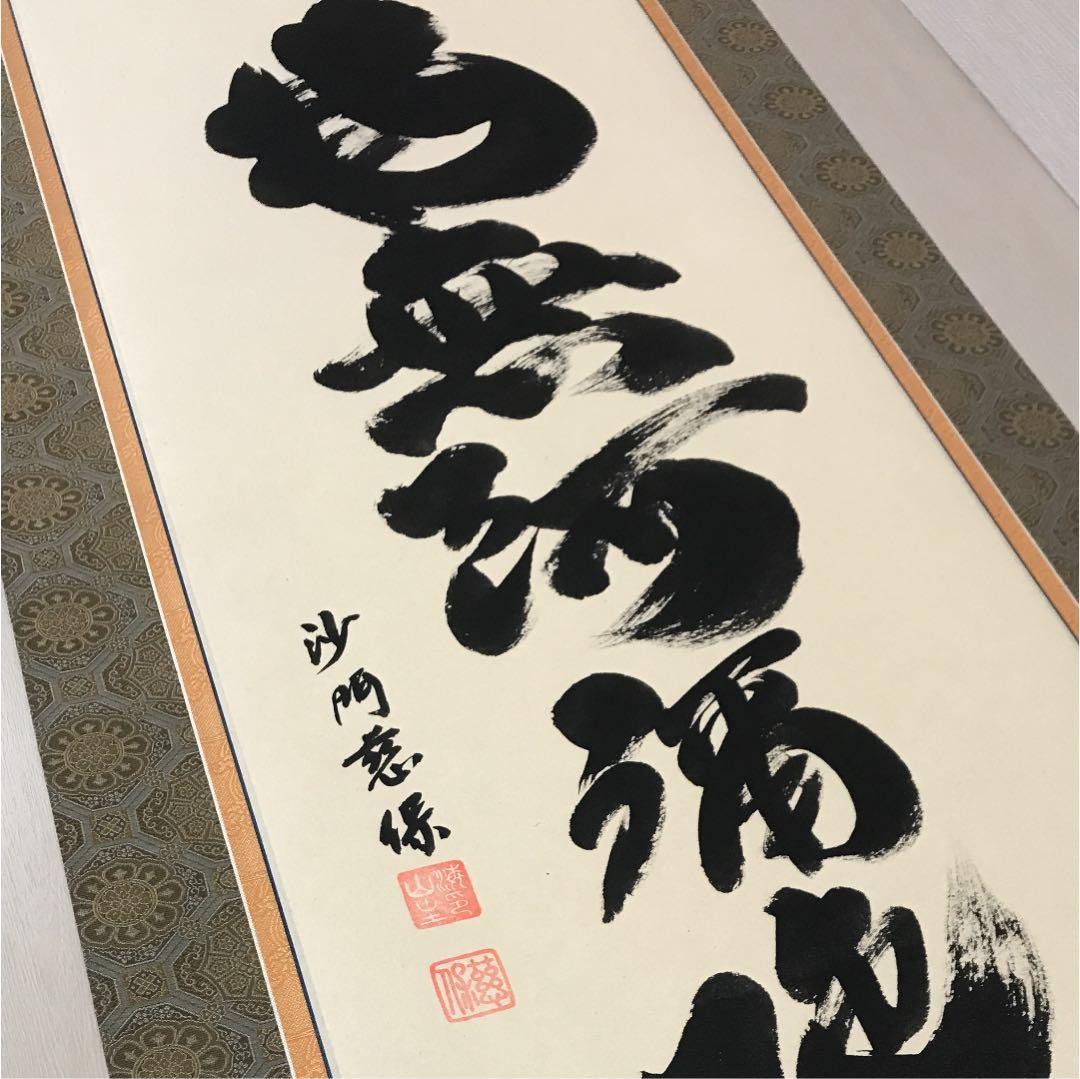 南無阿彌陀
沙門慈保